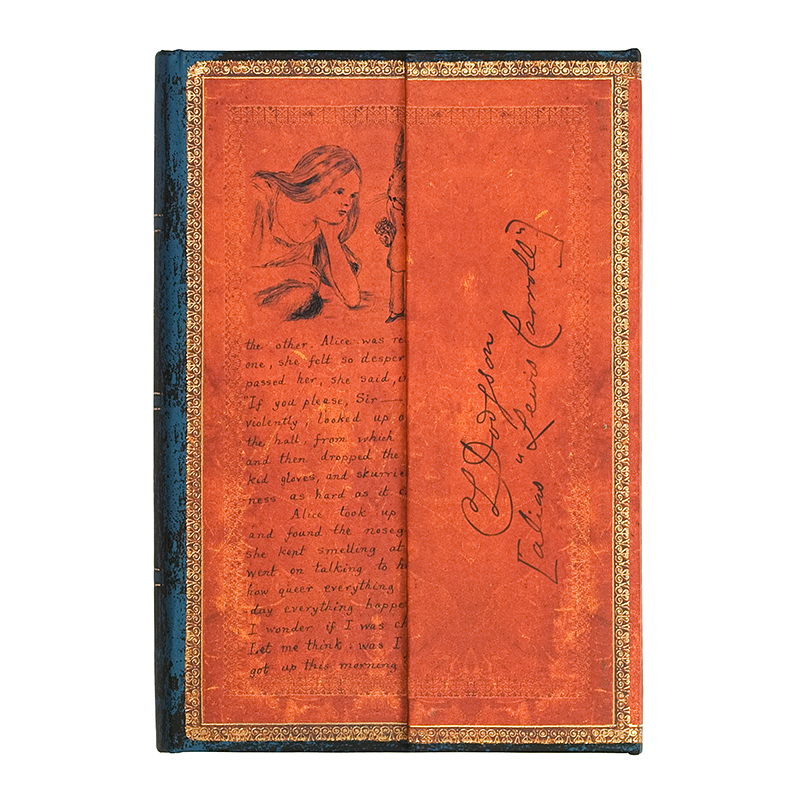 the other. Alice was re
one, she felt so desper
passed her, she said,
"If you please, Sir—
violently, looked up o
the hall, from which
and then dropped the
kid gloves, and skurrie
ness as hard as it c
Alice took up
and found the noseg
she kept smelling at
went on talking to h
how queer everything
day everything happe
I wonder if I was ch
Let me think: was I
got up this morning
CL Dodgson
[alias "Lewis Carroll"]